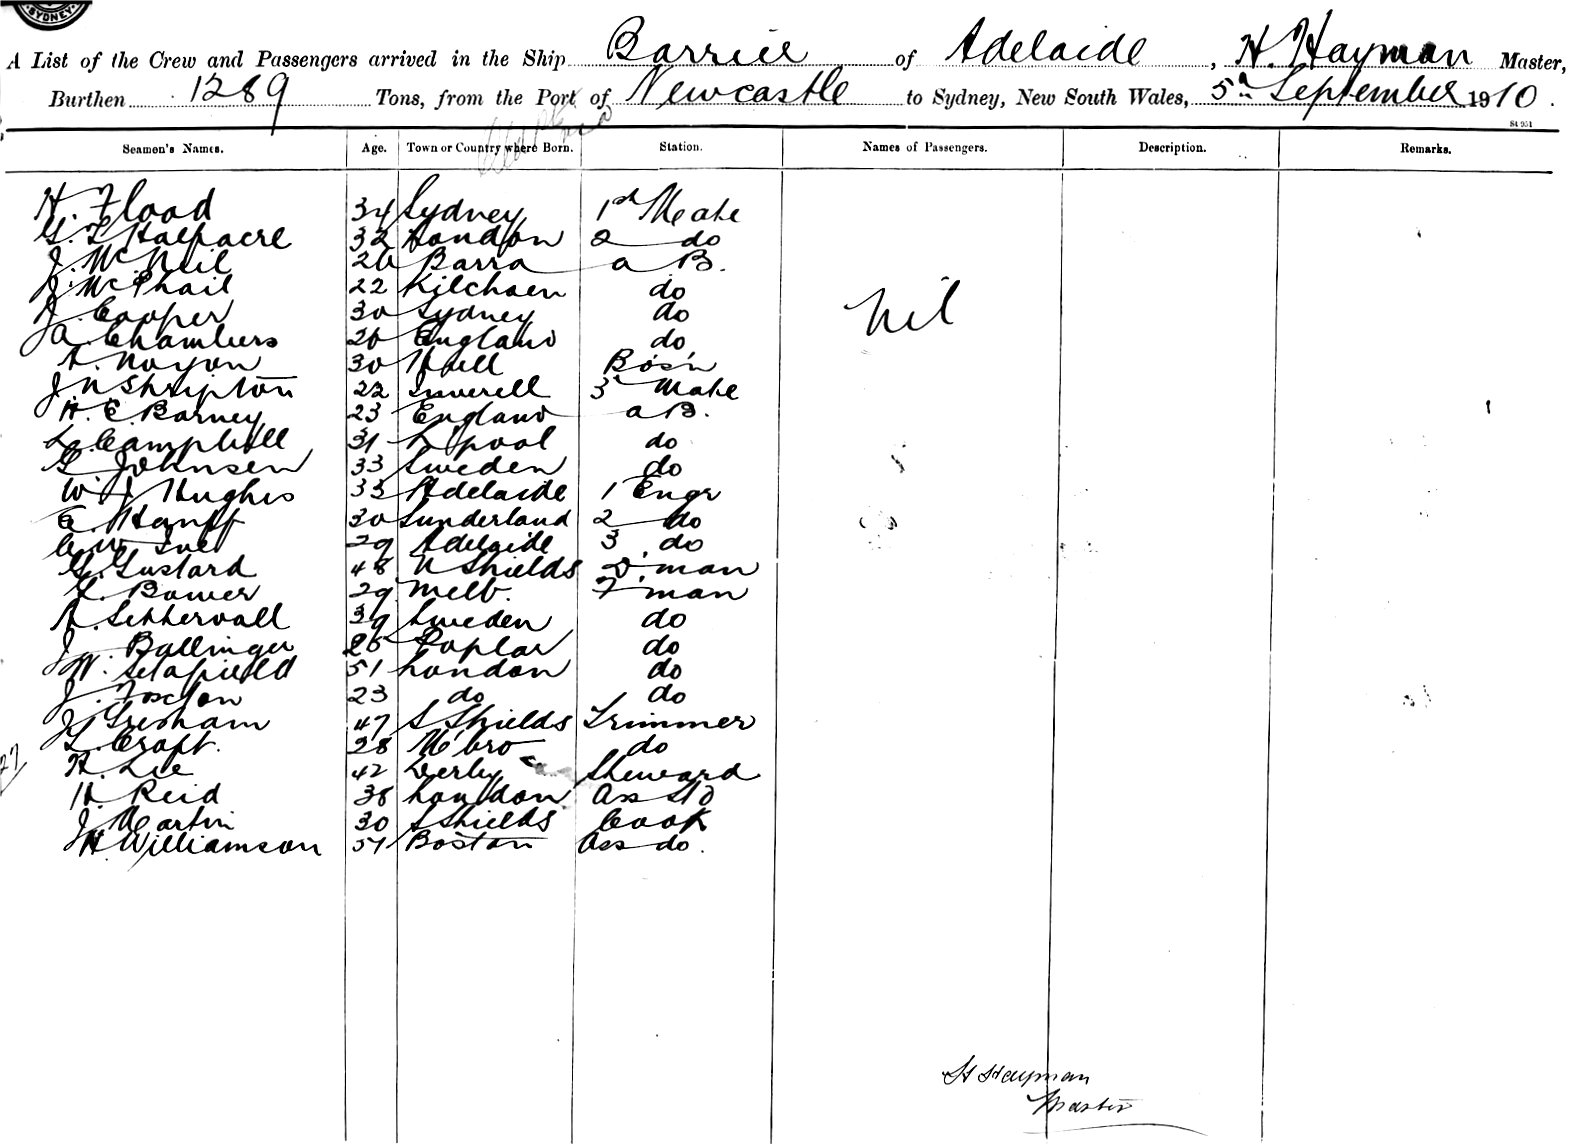 SYDNEY
A List of the Crew and Passengers arrived in the Ship Barrier of Adelaide, H. Hayman Master,
Burthen 1289 Tons, from the Port of Newcastle to Sydney, New South Wales, 5th September 1910.
St 951
Seamen's Names. Age. Town or Country where Born. Station. Names of Passengers. Description. Remarks.
H. Flood 34 Sydney 1st Mate
G. T Halfacre 32 London 2 do
J. McNeil 26 Barra a B.
J. McPhail 22 Kilchoen do
J. Cooper 30 Sydney do
Nil
A. Chambers 26 England do
A. Noyon 30 Hull Bos'n
J. N Shripton 22 Inverell 3 Mate
H. E. Barney 23 England a B.
L. Campbell 31 L'pool do
G. Johnsen 33 Sweden do
W. J Hughes 33 Adelaide 1 Engr
E. 30 Sunderland 2 do
C. W 29 Adelaide 3 do
G. Gustard 48 N Shields D'man
L. Bower 29 Melb. F'man
A. Settervall 39 Sweden do
J. Ballinger 25 Poplar do
W. 51 London do
J. Foxton 23 do do
J. Gresham 47 S Shields Trimmer
L. Croft. 28 M'bro do
27
H. Lee 42 Derby Steward
H. Reid 38 London Ass Std
J. Martin 30 S Shields Cook
H. Williamson 51 Boston Ass do.
H Hayman
Master